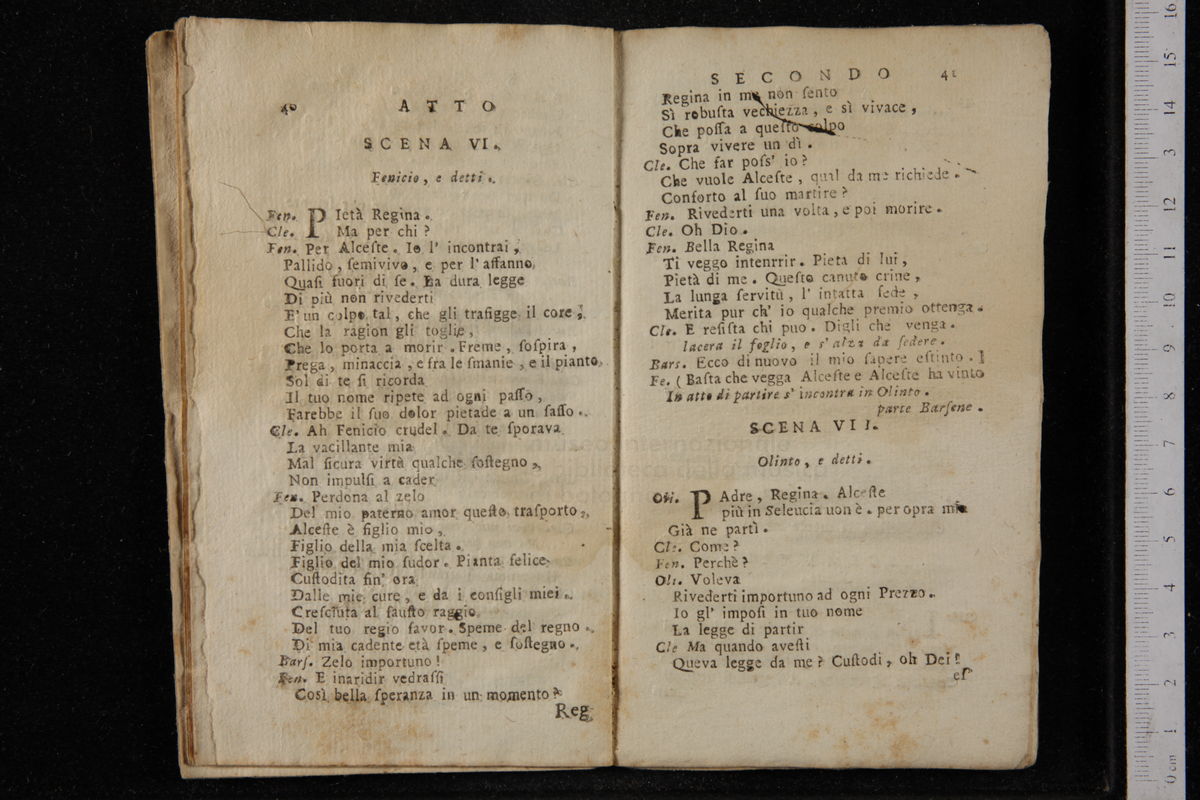 40 ATTO
SCENA VI.
Fenicio, e detti.
Fen. PIetà Regina.
Cle. Ma per chi?
Fen. Per Alceſte. Io l' incontrai,
Pallido, ſemivivo, e per l' affanno,
Quaſi fuori di ſe. La dura legge
Di più non rivederti
E' un colpo tal, che gli trafigge il core;
Che la ragion gli toglie,
Che lo porta a morir. Freme, ſoſpira,
Prega, minaccia, e fra le ſmanie, e il pianto,
Sol di te ſi ricorda
Il tuo nome ripete ad ogni paſſo,
Farebbe il ſuo dolor pietade a un ſaſſo.
Cle. Ah Fenicio crudel. Da te ſporava
La vacillante mia
Mal ſicura virtà qualche ſoſtegno,
Non impulſi a cader
Fen. Perdona al zelo
Del mio paterno amor queſto traſporto,
Alceſte è figlio mio,
Figlio della mia ſcelta.
Figlio del mio ſudor. Pianta felice
Cuſtodita fin' ora
Dalle mie cure, e da i conſigli miei.
Creſciuta al fauſto raggio
Del tuo regio favor. Speme del regno.
Di mia cadente età ſpeme, e ſoſtegno.
Barſ. Zelo importuno!
Fen. E inaridir vedraſſi
Così bella ſperanza in un momento?
Reg.
SECONDO 41
Regina in me non ſento
Sì robuſta vechiezza, e sì vivace,
Che poſſa a queſto colpo
Sopra vivere un dì.
Cle. Che far poſs' io?
Che vuole Alceſte, qual da me richiede.
Conforto al ſuo martire?
Fen. Rivederti una volta, e poi morire.
Cle. Oh Dio.
Fen. Bella Regina
Ti veggo intenrrir. Pieta di lui,
Pietà di me. Queſto canuto crine,
La lunga ſervitù, l' intatta fede,
Merita pur ch' io qualche premio ottenga.
Cle. E reſiſta chi puo. Digli che venga.
lacera il foglio, e s' alza da ſedere.
Bars. Ecco di nuovo il mio ſapere eſtinto.]
Fe. (Baſta che vegga Alceſte e Alceſte ha vinto
In atto di partire s' incontra in Olinto.
parte Barſene.
SCENA VII.
Olinto, e detti.
Oli. PAdre, Regina. Alceſte
più in Seleucia uon è. per opra mia
Già ne partì.
Cle. Come?
Fen. Perchè?
Oli. Voleva
Rivederti importuno ad ogni Prezzo.
Io gl' impoſi in tuo nome
La legge di partir
Cle Ma quando aveſti
Queva legge da me? Cuſtodi, oh Dei!
eſ